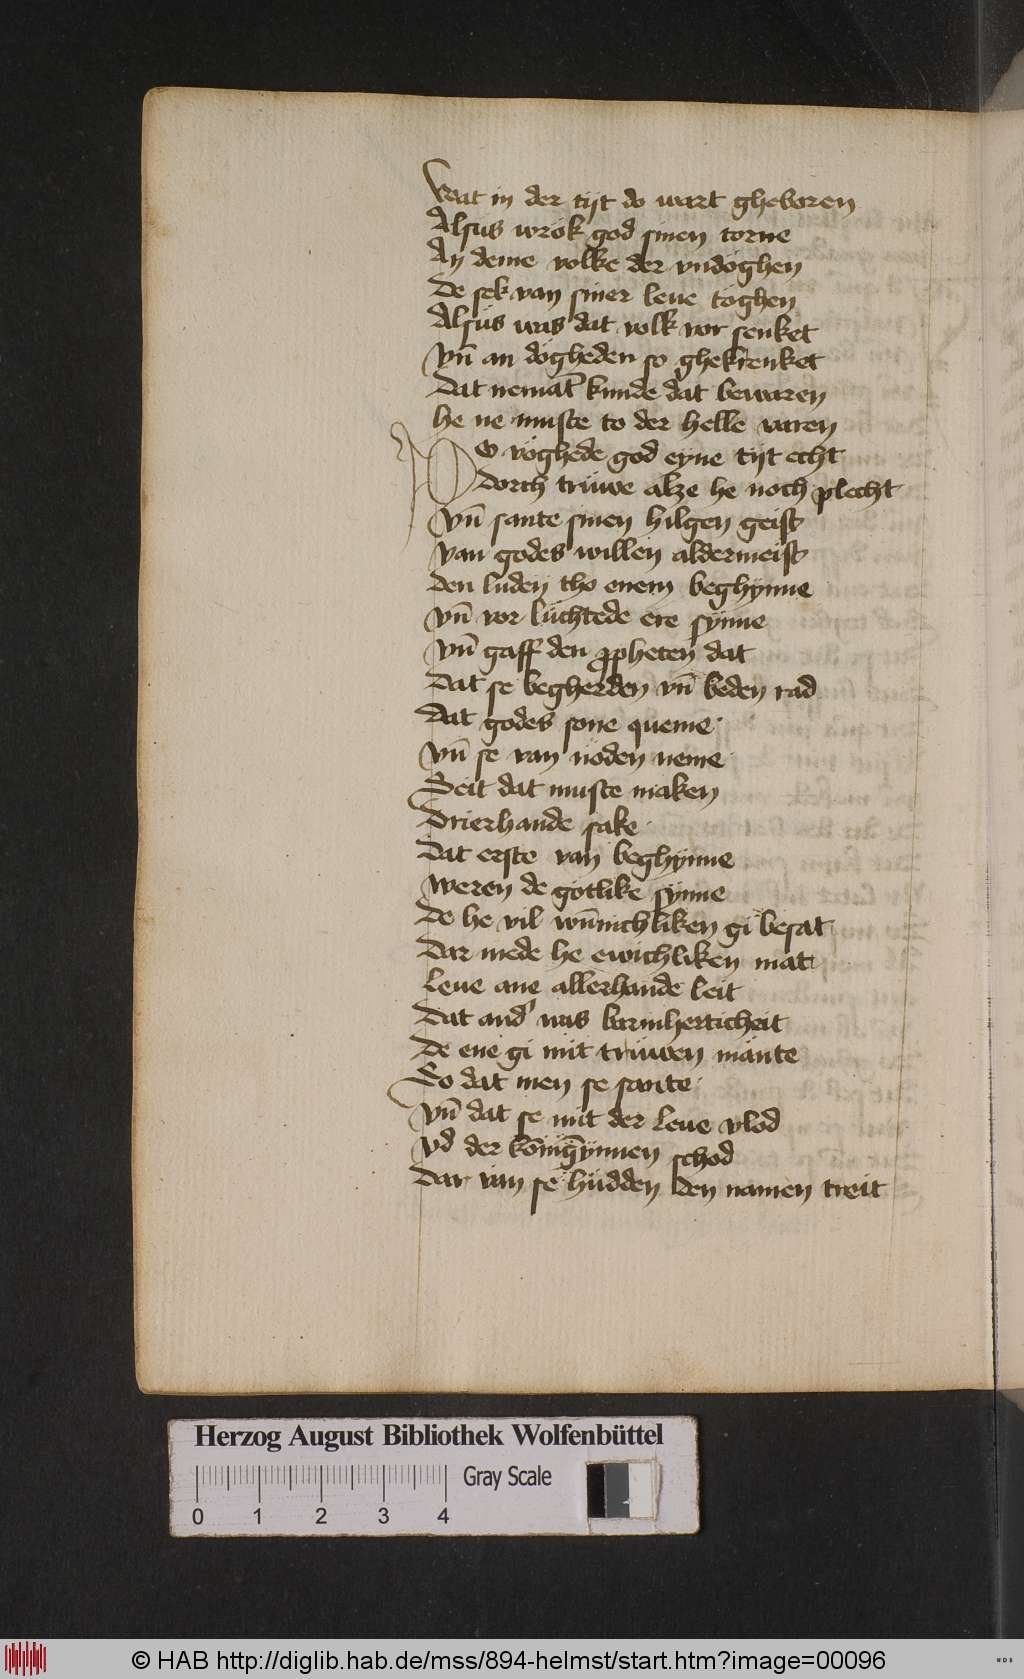 Wat in der tijt do wart gheboren
Alsus wrok god sinen torne
An deme volke der vndoghen
De sek van siner leue toghen
Alsus was dat volk vor senket
Vn̄ an dogheden so ghekrenket
Dat neman̄t kunde dat bewaren
he ne muste to der helle varen
O voghede god eyne tijt echt
Dorch truwe alze he noch plecht
Vn̄ sante sinen hilgen geist
van godes willen aldermeist
den luden tho enem beghynne
vn̄ vor luchtede ere synne
Vn̄ gaff den ꝓpheten dat
Dat se begherden vn̄ beden rad
Dat godes sone queme
Vn̄ se van noden neme
Seit dat muste maken
Drierhande sake
Dat erste van beghynne
weren de gotlike synne
De he vil wūnichliken gi besat
Dar mede he ewichliken mat
Leue ane allerhande leit
Dat and' was barmherticheit
De ene gi mit truwen mante
So dat men se sante
Vn̄ dat se mit der leue vlod
vd der konīgȳnnen schod
Dar van se hudden den namen treit
Herzog August Bibliothek Wolfenbüttel
Gray Scale
0 1 2 3 4
© HAB http://diglib.hab.de/mss/894-helmst/start.htm?image=00096